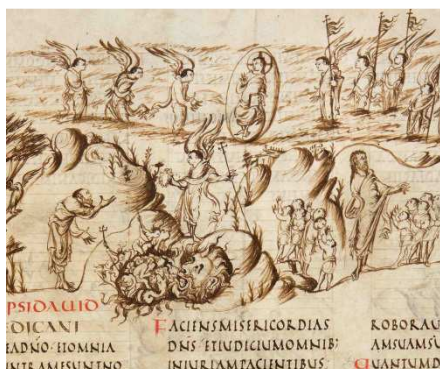 PSIDAUID
EDICANI
EADÑO·ETOMNIA
NTRAMESUNTNO
FACIENSMISERICORDIAS
DÑS ETIUDICIUMOMNIB;
INIURIAMPATIENTIBUS
ROBORAU
AMSUAMSU
QUANTUMD